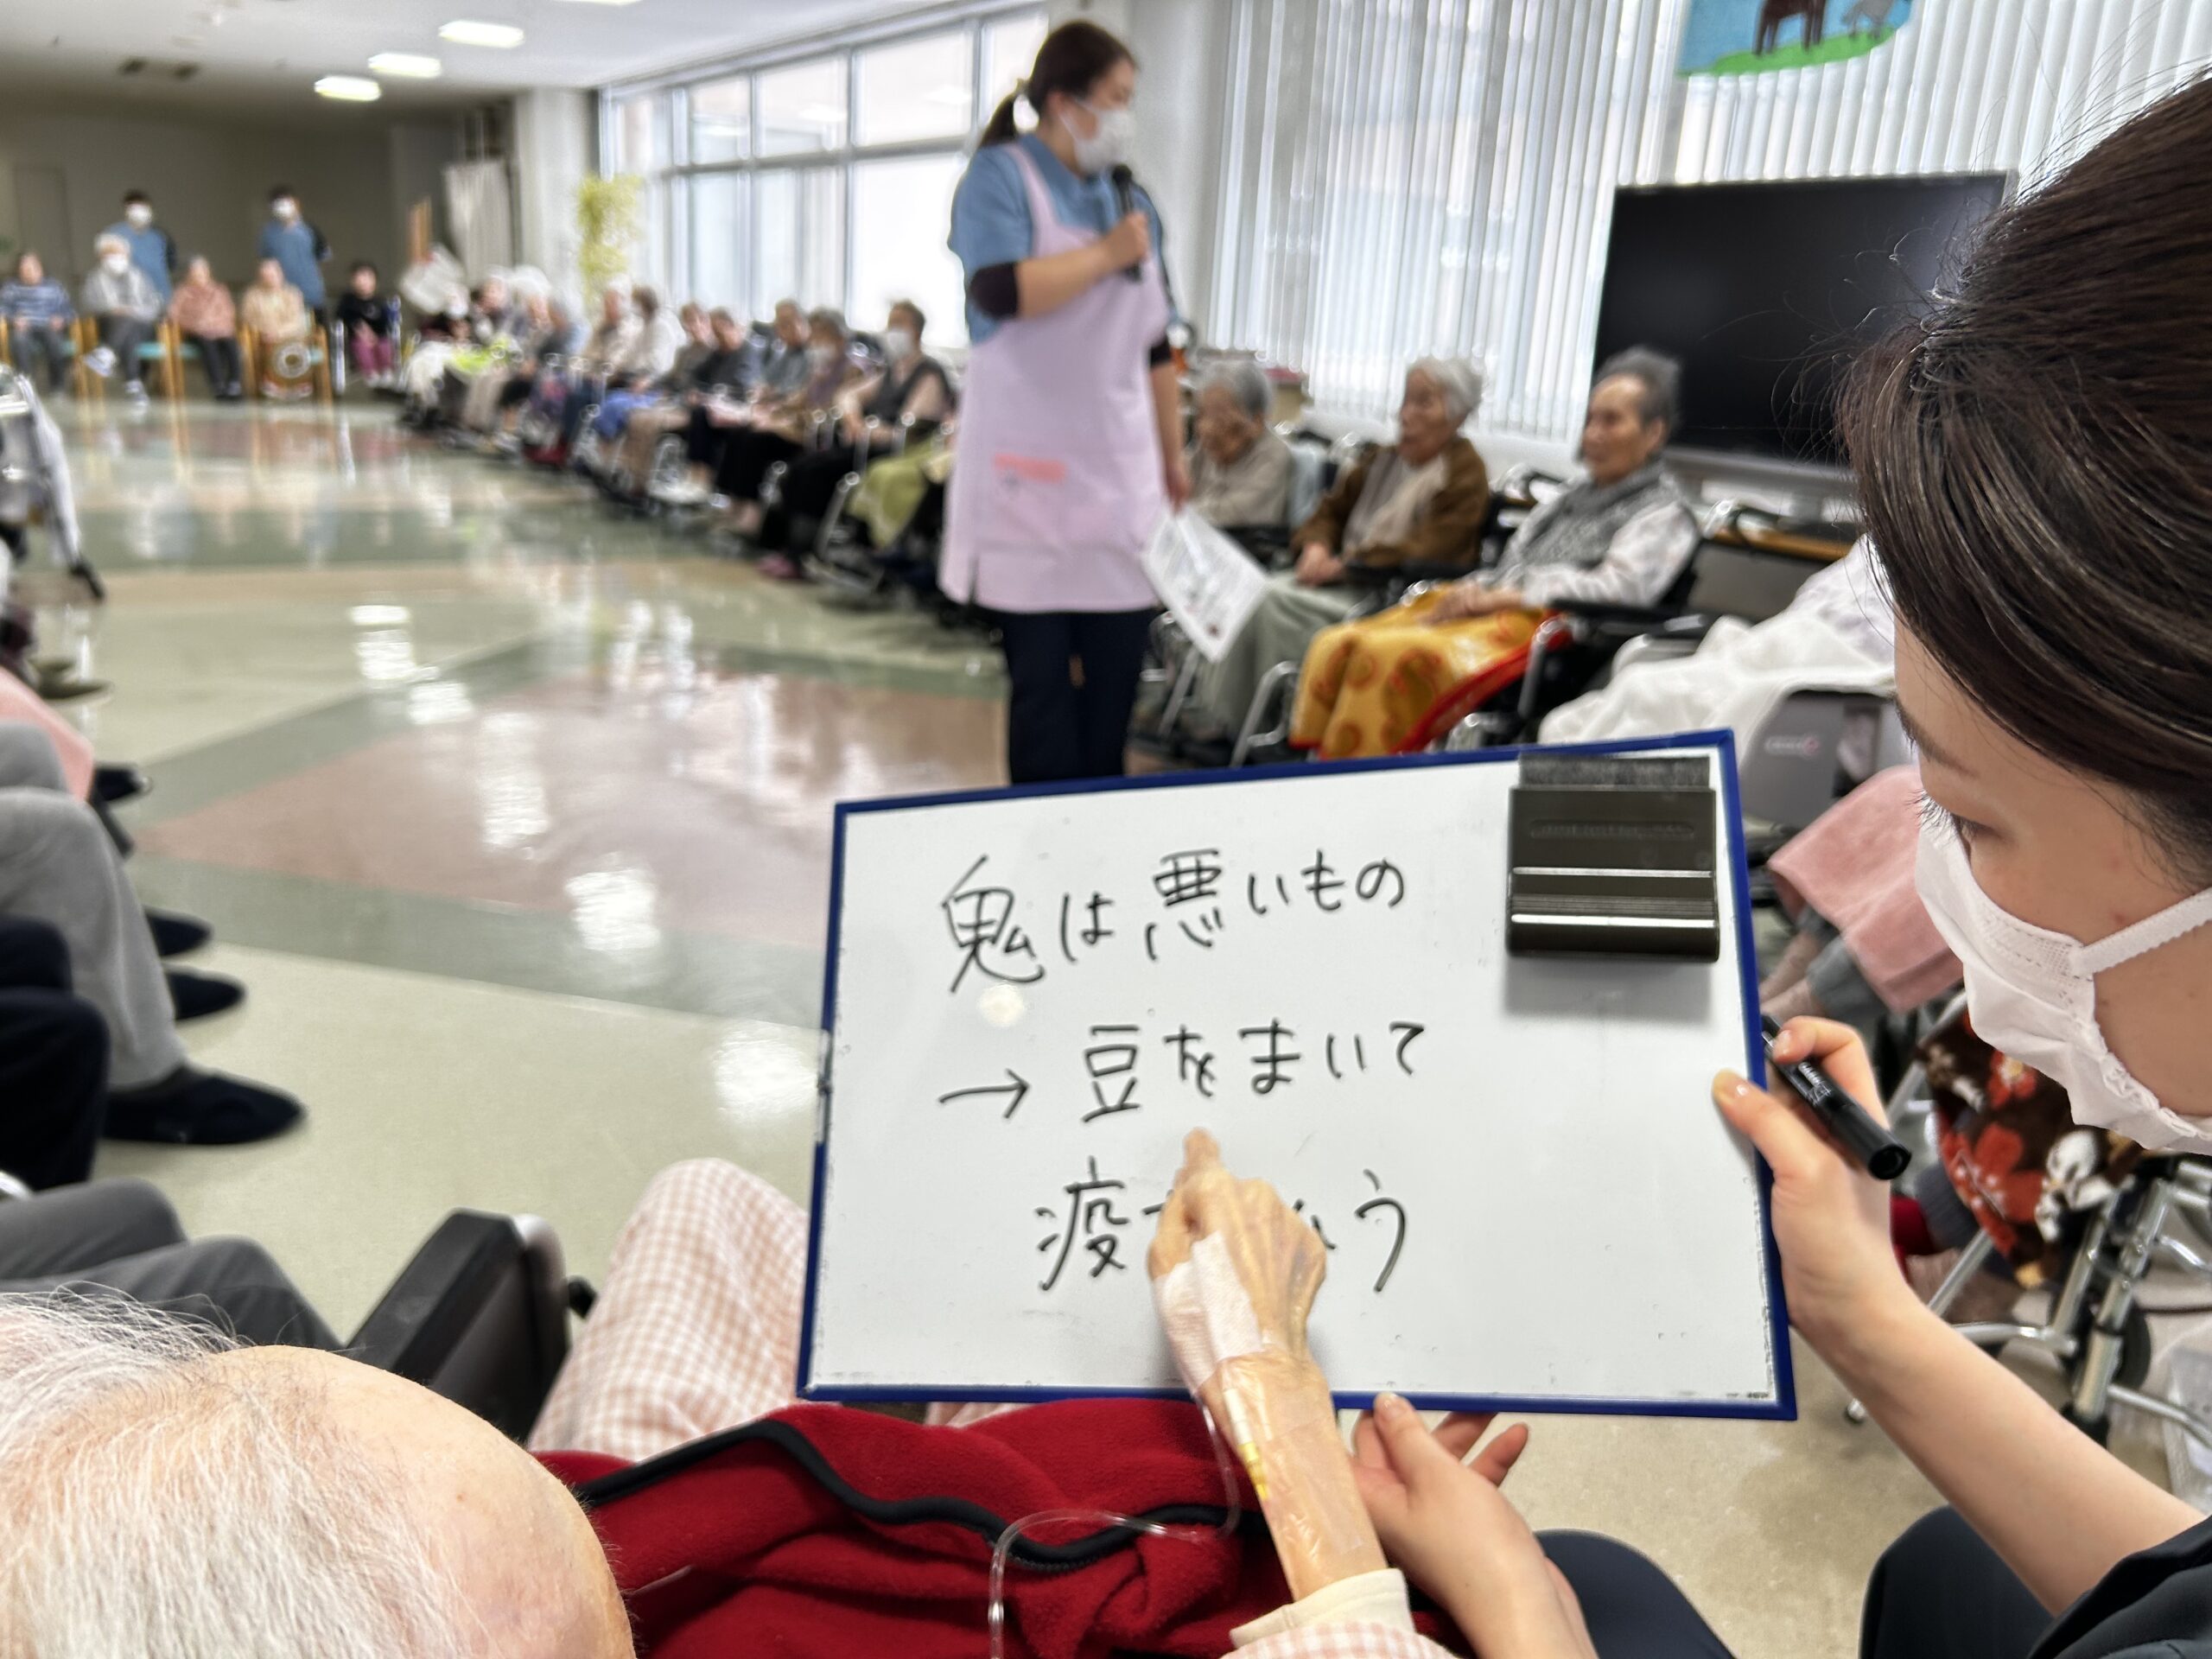 鬼は悪いもの
→ 豆をまいて
疫 う